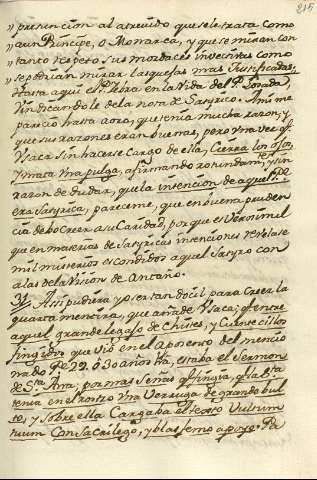 215
" presuncion al atreuido que se le trata como
" a un Principe, o Monarca, y que se miran con
" tanto respeto sus mordaces invectiuas como
" se podrian mirar las quejas mas Justificadas,
Hasta aqui el P. Isla en la Vida del P. Losada,
Vindicandole de la nota de Satyrico. A mi me
parecio hasta aora, que tenia mucha razon, y
que sus razones eran buenas, pero Una vez q.e
Ysaca sin hacerse cargo de ella, Cierra los ojos,
y mata Una pulga, afirmando rotundam.te, y sin
razon de dudar, que la intencion de aquel P.e
era Satyrica, pareceme, que en buena pruden
cia debo creer a su Caridad, porque es Verosimil
que en materias de Satyricas intenciones reuelase
mil misterios escondidos aquel Satyro con
alas de la Vision de Antaño.
31. Assi pudiera yo ser tan docil para creer la
quarta mentira, que añade Ysaca; q.e entre
aquel grande legajo de Chistes, y Cuentecillos
fingidos que Vio en el Aposento del mencio
nado P.e 22. ó 30 años ha, estaba el Sermon
de S.ta Ana; por mas Señas q.e fingia, q.e la S.ta
tenia en el rostro Una Verruga de grande bul
to, y sobre ella Cargaba el texto Vultum
tuum Con Sacrilego, y blasfemo apoyo. Pa